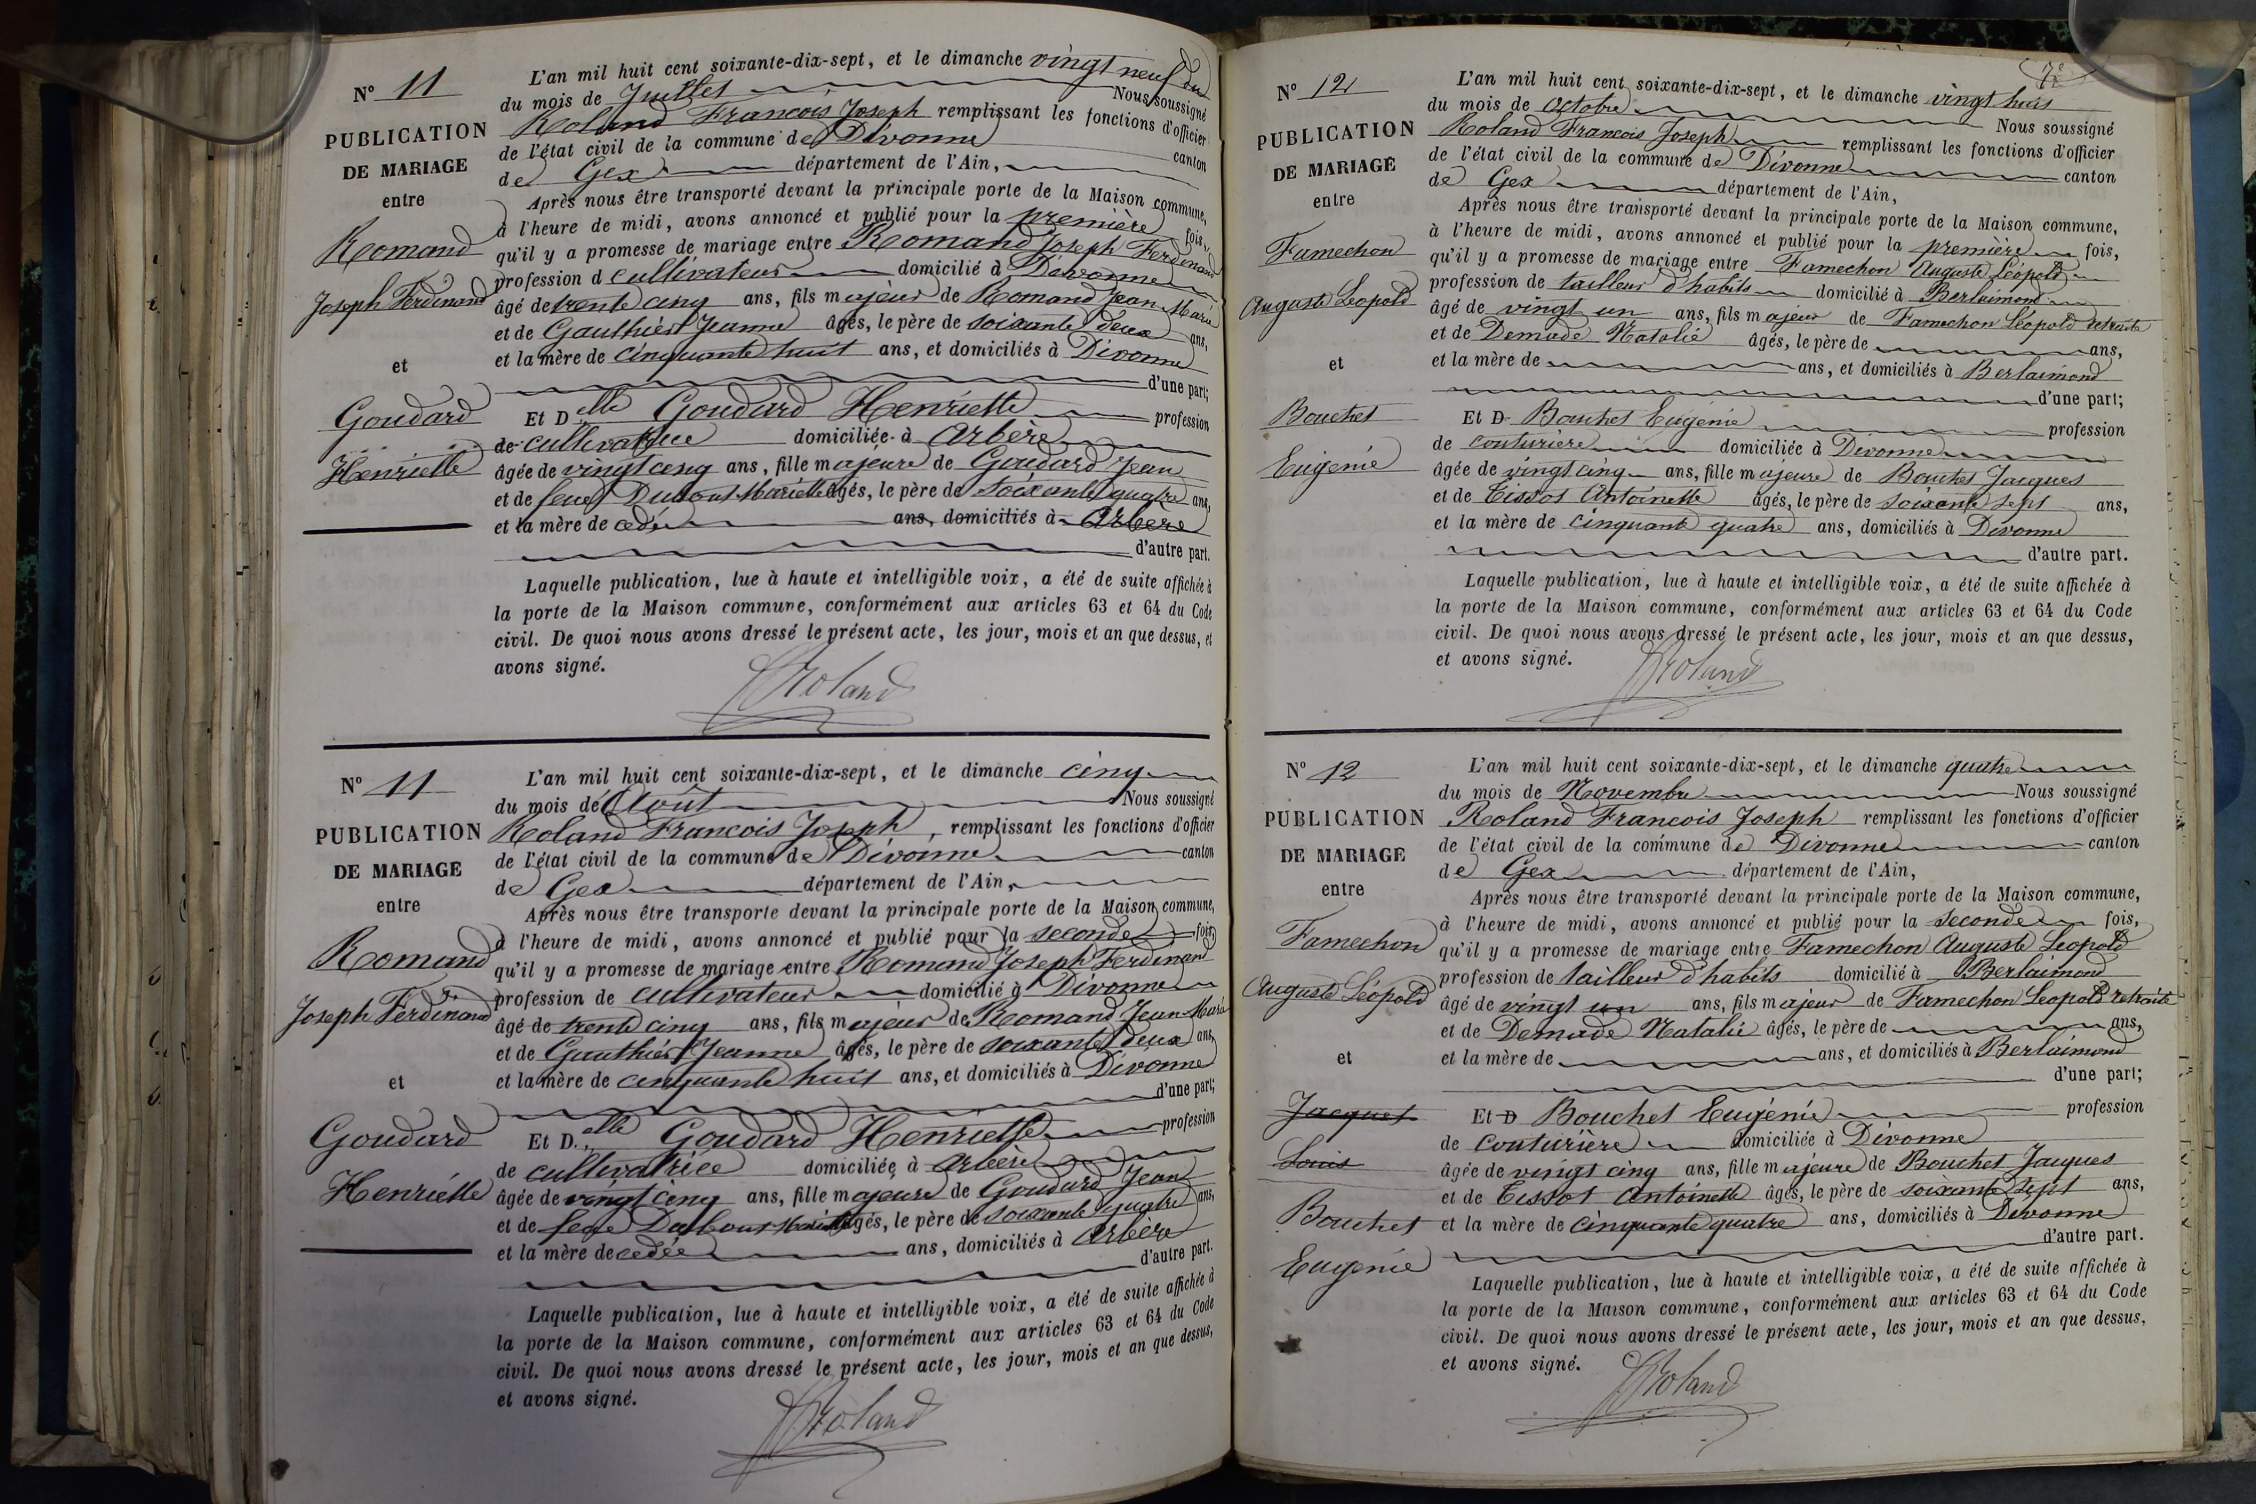 Nº 11
PUBLICATION
DE MARIAGE
entre
Romand
Joseph Ferdinand
et
Goudard
Henriette
L'an mil huit cent soixante-dix-sept, et le dimanche vingt neuf du
du mois de Juillet Nous soussigné
Roland Francois Joseph remplissant les fonctions d'officier
de l'état civil de la commune de Divonne canton
de Gex département de l'Ain,
Après nous être transporté devant la principale porte de la Maison commune,
à l'heure de midi, avons annoncé et publié pour la première fois,
qu'il y a promesse de mariage entre Romand Joseph Ferdinand
profession d cultivateur domicilié à Divonne
âgé de trente cinq ans, fils majeur de Romand Jean Marie
et de Gauthier Jeanne âgés, le père de soixante deux ans,
et la mère de cinquante huit ans, et domiciliés à Divonne
d'une part;
Et Delle Goudard Henriette profession
de cultivatrice domiciliée à Arbère
âgée de vingt cinq ans, fille majeure de Goudard Jean
et de feue âgés, le père de soixante quatre ans,
et la mère de cédée ans, domiciliés à Arbère
d'autre part.
Laquelle publication, lue à haute et intelligible voix, a été de suite affichée à
la porte de la Maison commune, conformément aux articles 63 et 64 du Code
civil. De quoi nous avons dressé le présent acte, les jour, mois et an que dessus, et
avons signé.
Roland
Nº 11
PUBLICATION
DE MARIAGE
entre
Romand
Joseph Ferdinand
et
Goudard
Henriette
L'an mil huit cent soixante-dix-sept, et le dimanche cinq
du mois de Août Nous soussigné
Roland Francois Joseph, remplissant les fonctions d'officier
de l'état civil de la commune de Divonne canton
de Gex département de l'Ain,
Après nous être transporté devant la principale porte de la Maison commune,
à l'heure de midi, avons annoncé et publié pour la seconde fois,
qu'il y a promesse de mariage entre Romand Joseph Ferdinand
profession de cultivateur domicilié à Divonne
âgé de trente cinq ans, fils majeur de Romand Jean Marie
et de Gauthier Jeanne âgés, le père de soixante deux ans,
et la mère de cinquante huit ans, et domiciliés à Divonne
d'une part;
Et D.elle Goudard Henriette profession
de cultivatrice domiciliée à Arbère
âgée de vingt cinq ans, fille majeure de Goudard Jean
et de feue âgés, le père de soixante quatre ans,
et la mère de cedée ans, domiciliés à Arbère
d'autre part.
Laquelle publication, lue à haute et intelligible voix, a été de suite affichée à
la porte de la Maison commune, conformément aux articles 63 et 64 du Code
civil. De quoi nous avons dressé le présent acte, les jour, mois et an que dessus,
et avons signé.
Roland
Nº 12
PUBLICATION
DE MARIAGE
entre
Famechon
Auguste Léopold
et
Bouchet
Eugénie
L'an mil huit cent soixante-dix-sept, et le dimanche vingt huit
du mois de octobre Nous soussigné
Roland Francois Joseph remplissant les fonctions d'officier
de l'état civil de la commune de Divonne canton
de Gex département de l'Ain,
Après nous être transporté devant la principale porte de la Maison commune,
à l'heure de midi, avons annoncé et publié pour la première fois,
qu'il y a promesse de mariage entre Famechon Auguste Léopold
profession de tailleur d'habits domicilié à Berlaimond
âgé de vingt un ans, fils majeur de Famechon Léopold retraité
et de Demade Natalie âgés, le père de ans,
et la mère de ans, et domiciliés à Berlaimond
d'une part;
Et D Bouchet Eugénie profession
de couturière domiciliée à Divonne
âgée de vingt cinq ans, fille majeure de Bouchet Jacques
et de Tissot Antoinette âgés, le père de soixante sept ans,
et la mère de cinquante quatre ans, domiciliés à Divonne
d'autre part.
Laquelle publication, lue à haute et intelligible voix, a été de suite affichée à
la porte de la Maison commune, conformément aux articles 63 et 64 du Code
civil. De quoi nous avons dressé le présent acte, les jour, mois et an que dessus,
et avons signé.
Roland
Nº 12
PUBLICATION
DE MARIAGE
entre
Famechon
Auguste Léopold
et
Jacquet
Louis
Bouchet
Eugénie
L'an mil huit cent soixante-dix-sept, et le dimanche quatre
du mois de Novembre Nous soussigné
Roland Francois Joseph remplissant les fonctions d'officier
de l'état civil de la commune de Divonne canton
de Gex département de l'Ain,
Après nous être transporté devant la principale porte de la Maison commune,
à l'heure de midi, avons annoncé et publié pour la seconde fois,
qu'il y a promesse de mariage entre Famechon Auguste Leopold
profession de tailleur d'habits domicilié à Berlaimond
âgé de vingt un ans, fils majeur de Famechon Leopold retraité
et de Demade Natalie âgés, le père de ans,
et la mère de ans, et domiciliés à Berlaimond
d'une part;
Et D Bouchet Eugénie profession
de couturière domiciliée à Divonne
âgée de vingt cinq ans, fille majeure de Bouchet Jacques
et de Tissot Antoinette âgés, le père de soixante sept ans,
et la mère de cinquante quatre ans, domiciliés à Divonne
d'autre part.
Laquelle publication, lue à haute et intelligible voix, a été de suite affichée à
la porte de la Maison commune, conformément aux articles 63 et 64 du Code
civil. De quoi nous avons dressé le présent acte, les jour, mois et an que dessus,
et avons signé.
Roland